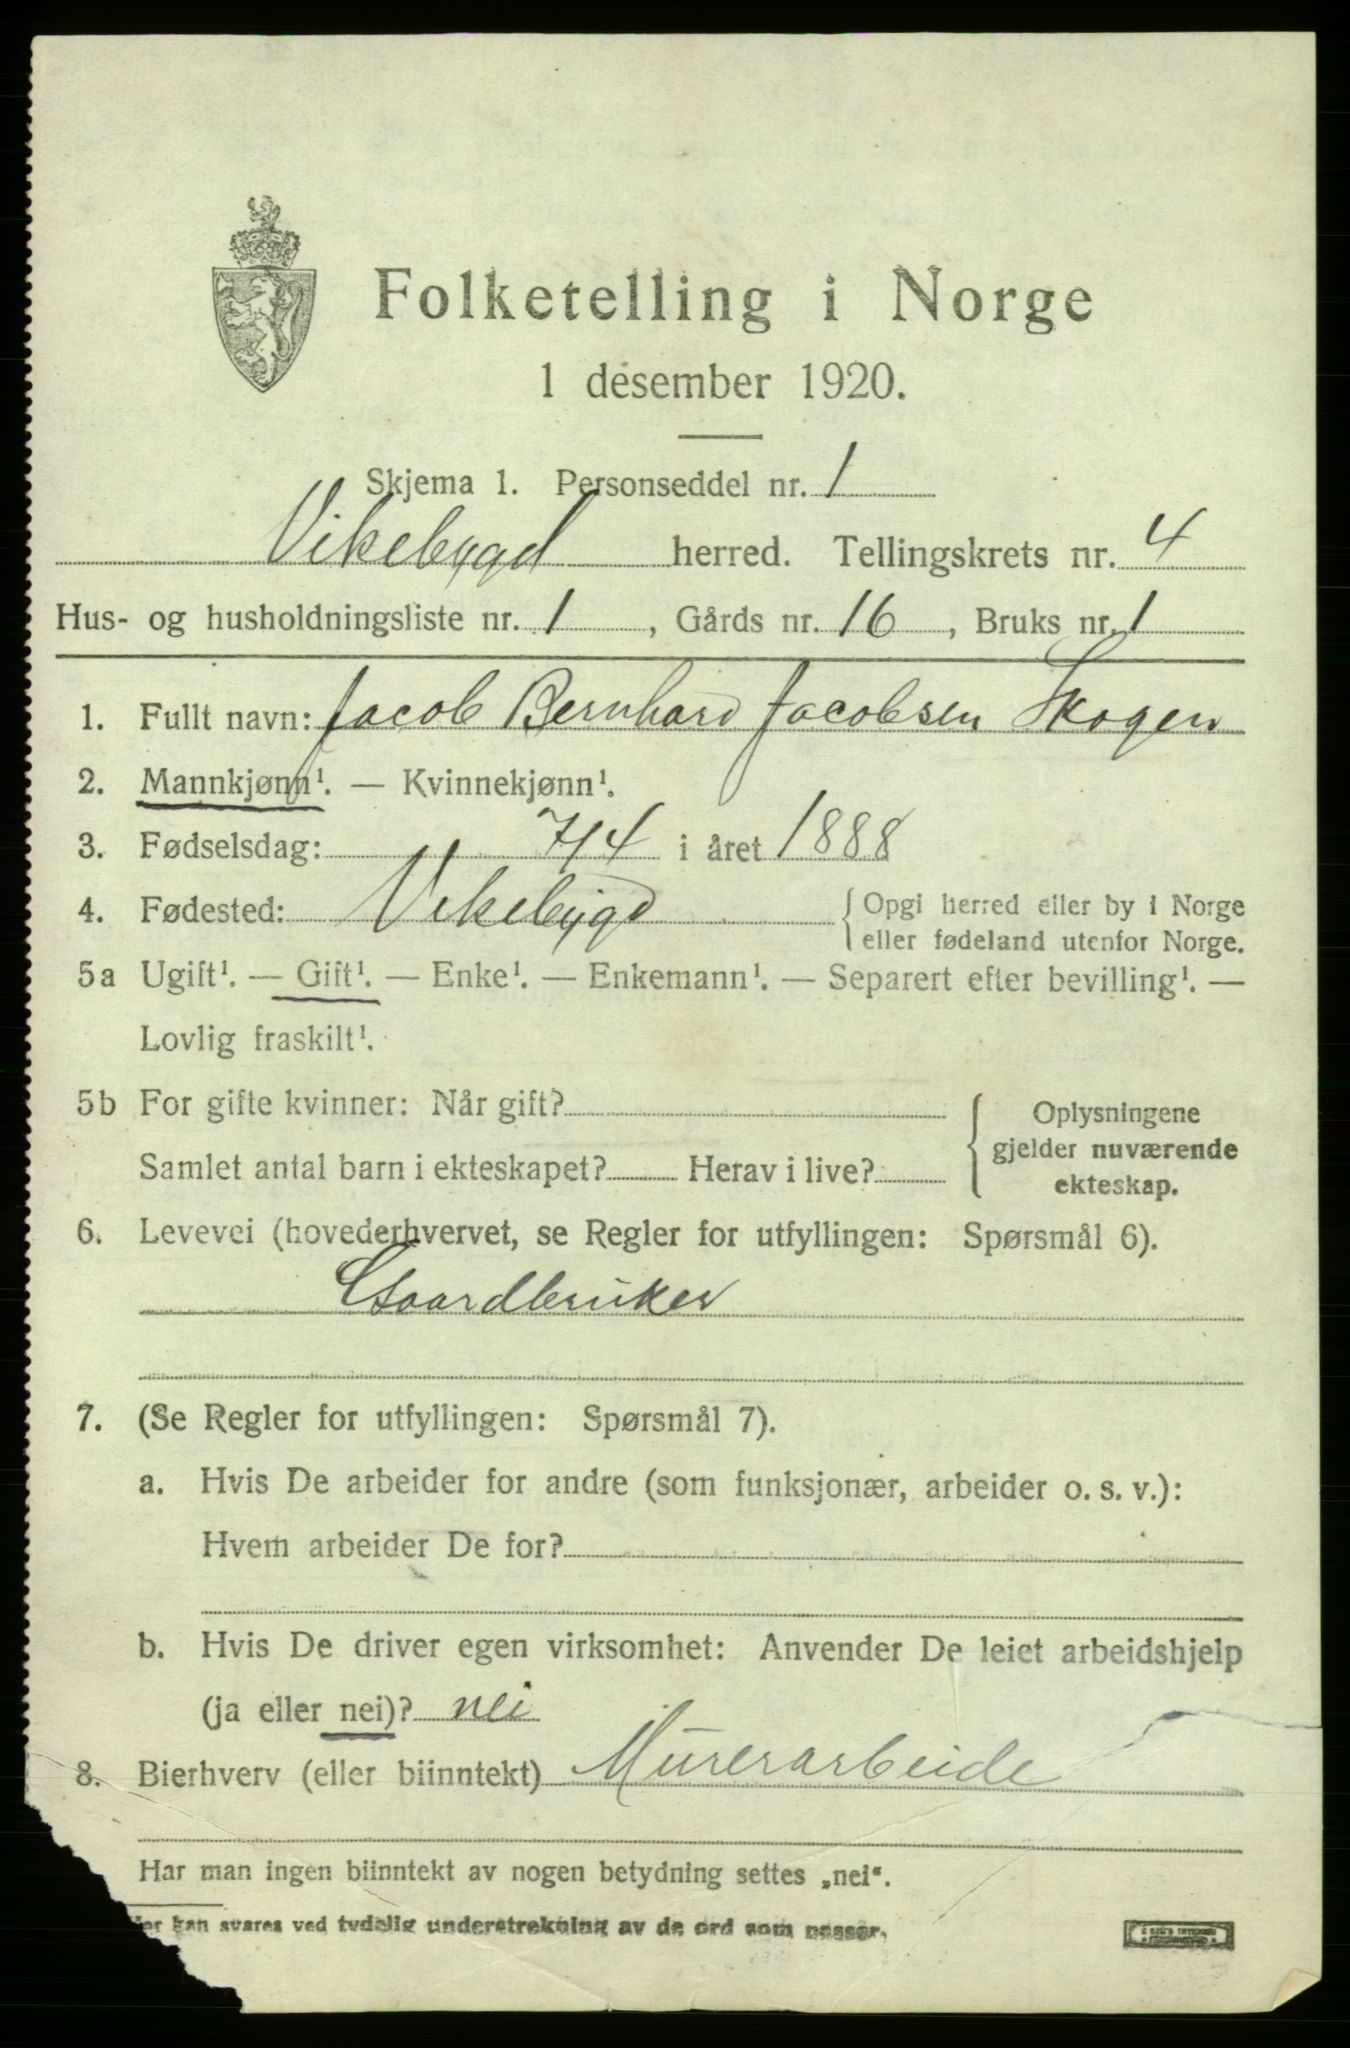 Folketelling i Norge
1 desember 1920.
Skjema 1. Personseddel nr. 1
Vikebygd herred. Tellingskrets nr. 4
Hus- og husholdningsliste nr. 1, Gårds nr. 16, Bruks nr. 1
1. Fullt navn: Jacob Bernhard Jacobsen Skogen
2. Mannkjønn¹. — Kvinnekjønn¹.
3. Fødselsdag: 7/4 i året 1888
4. Fødested: Vikebygd { Opgi herred eller by i Norge
eller fødeland utenfor Norge.
5a Ugift¹. — Gift¹. — Enke¹. — Enkemann¹. — Separert efter bevilling¹. —
Lovlig fraskilt¹.
5b For gifte kvinner: Når gift?
Samlet antal barn i ekteskapet? Herav i live?
{ Oplysningene
gjelder nuværende
ekteskap.
6. Levevei (hovederhvervet, se Regler for utfyllingen: Spørsmål 6).
Gaardbruker
7. (Se Regler for utfyllingen: Spørsmål 7).
a. Hvis De arbeider for andre (som funksjonær, arbeider o. s. v.):
Hvem arbeider De for?
b. Hvis De driver egen virksomhet: Anvender De leiet arbeidshjelp
(ja eller nei)? nei
8. Bierhverv (eller biinntekt) Murerarbeide
Har man ingen biinntekt av nogen betydning settes „nei“.
Her kan svares ved tydelig understrekning av de ord som passer.